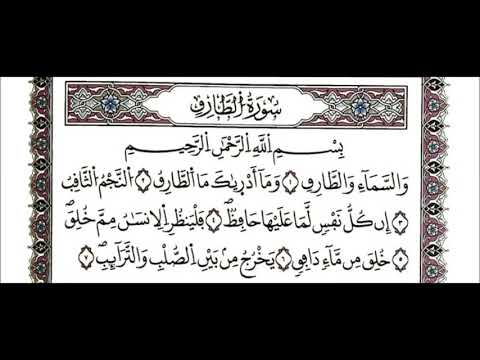 سُورَةُ الطَّارِقِ
بِسْمِ اللَّهِ الرَّحْمَٰنِ الرَّحِيمِ
وَالسَّمَاءِ وَالطَّارِقِ ١ وَمَا أَدْرَىٰكَ مَا الطَّارِقُ ٢ النَّجْمُ الثَّاقِبُ
٣ إِن كُلُّ نَفْسٍ لَّمَّا عَلَيْهَا حَافِظٌ ٤ فَلْيَنظُرِ الْإِنسَانُ مِمَّ خُلِقَ
٥ خُلِقَ مِن مَّاءٍ دَافِقٍ ٦ يَخْرُجُ مِنْ بَيْنِ الصُّلْبِ وَالتَّرَائِبِ ٧